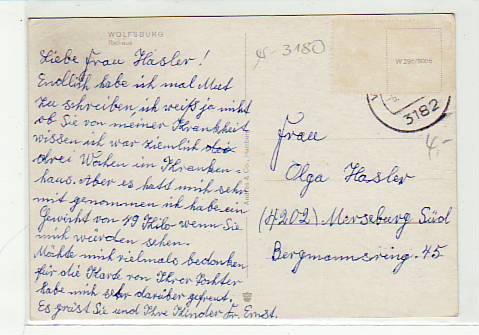 WOLFSBURG
Rathaus
Liebe Frau Hasler!
Endlich habe ich mal Mut
zu schreiben, ich weiß ja nicht
ob Sie von meiner Krankheit
wissen ich war ziemlich
drei Wochen im Kranken
haus. Aber es hats mich sehr
mit genommen ich habe ein
Gewicht von 49 Kilo wenn Sie
mich würden sehen.
Möhte mich vielmals bedanken
für die Karte von Ihrer Tochter
habe mich sehr darüber gefreut.
Es grüßt Sie und Ihre Kinder Fr. Ernst.
3180
W 296/8006
3182
4,-
Frau
Olga Hasler
(4202) Merseburg Süd
Bergmannsring 45